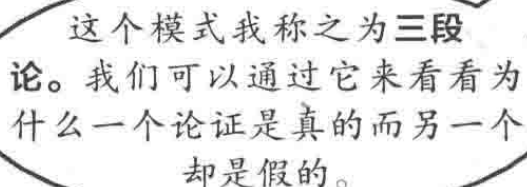 这个模式我称之为三段
论。我们可以通过它来看看为
什么一个论证是真的而另一个
却是假的。